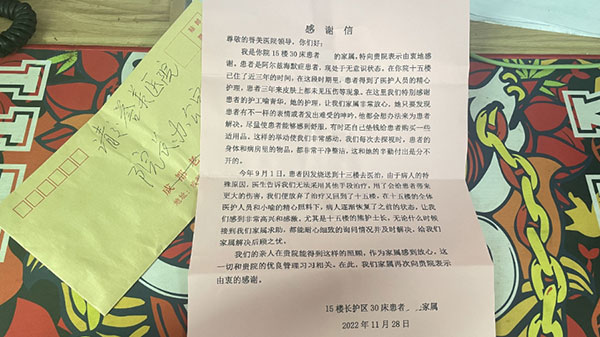 感谢信
尊敬的誉美医院领导，你们好：
我是你院 15 楼 30 床患者 的家属，特向贵院表示由衷地感
谢。患者是阿尔兹海默症患者，现处于无意识状态，在你院十五楼
已住了近三年的时间，在这段时期里，患者得到了医护人员的精心
护理。患者三年来皮肤上都未见压伤等现象。在这里我们特别感谢
患者的护工喻青华，她的护理，让我们家属非常放心，她只要发现
患者有不一样的表情或者发出难受的呻吟，他都会想办法来为患者
解决。尽量使患者能够感到舒服，有时还自己垫钱给患者购买一些
适用品。这样的举动使我们非常感动。我们每次去探视时，患者的
身体和病房里的物品，都非常干净整洁。这和她的辛勤付出是分不
开的。
今年 9 月 1 日，患者因发烧送到十三楼去医治，由于病人的特
殊原因，医生告诉我们无法采用其他手段治疗，用了会给患者带来
更大的伤害，我们便放弃了治疗又回到了十五楼。在十五楼的全体
医护人员和小喻的精心照料下，病人逐渐恢复了之前的状态，让我
们感到非常高兴和感激。尤其是十五楼的熊护士长，无论什么时候
接到我们家属求助，都能耐心细致的询问情况并及时解决，给我们
家属解决后顾之忧。
我们的亲人在贵院能得到这样的照顾，作为家属感到放心，这
一切和贵院的优良管理习习相关。在此，我们家属再次向贵院表示
由衷的感谢。
15 楼长护区 30 床患者 家属
2022 年 11 月 28 日
誉美医院
院长办公室